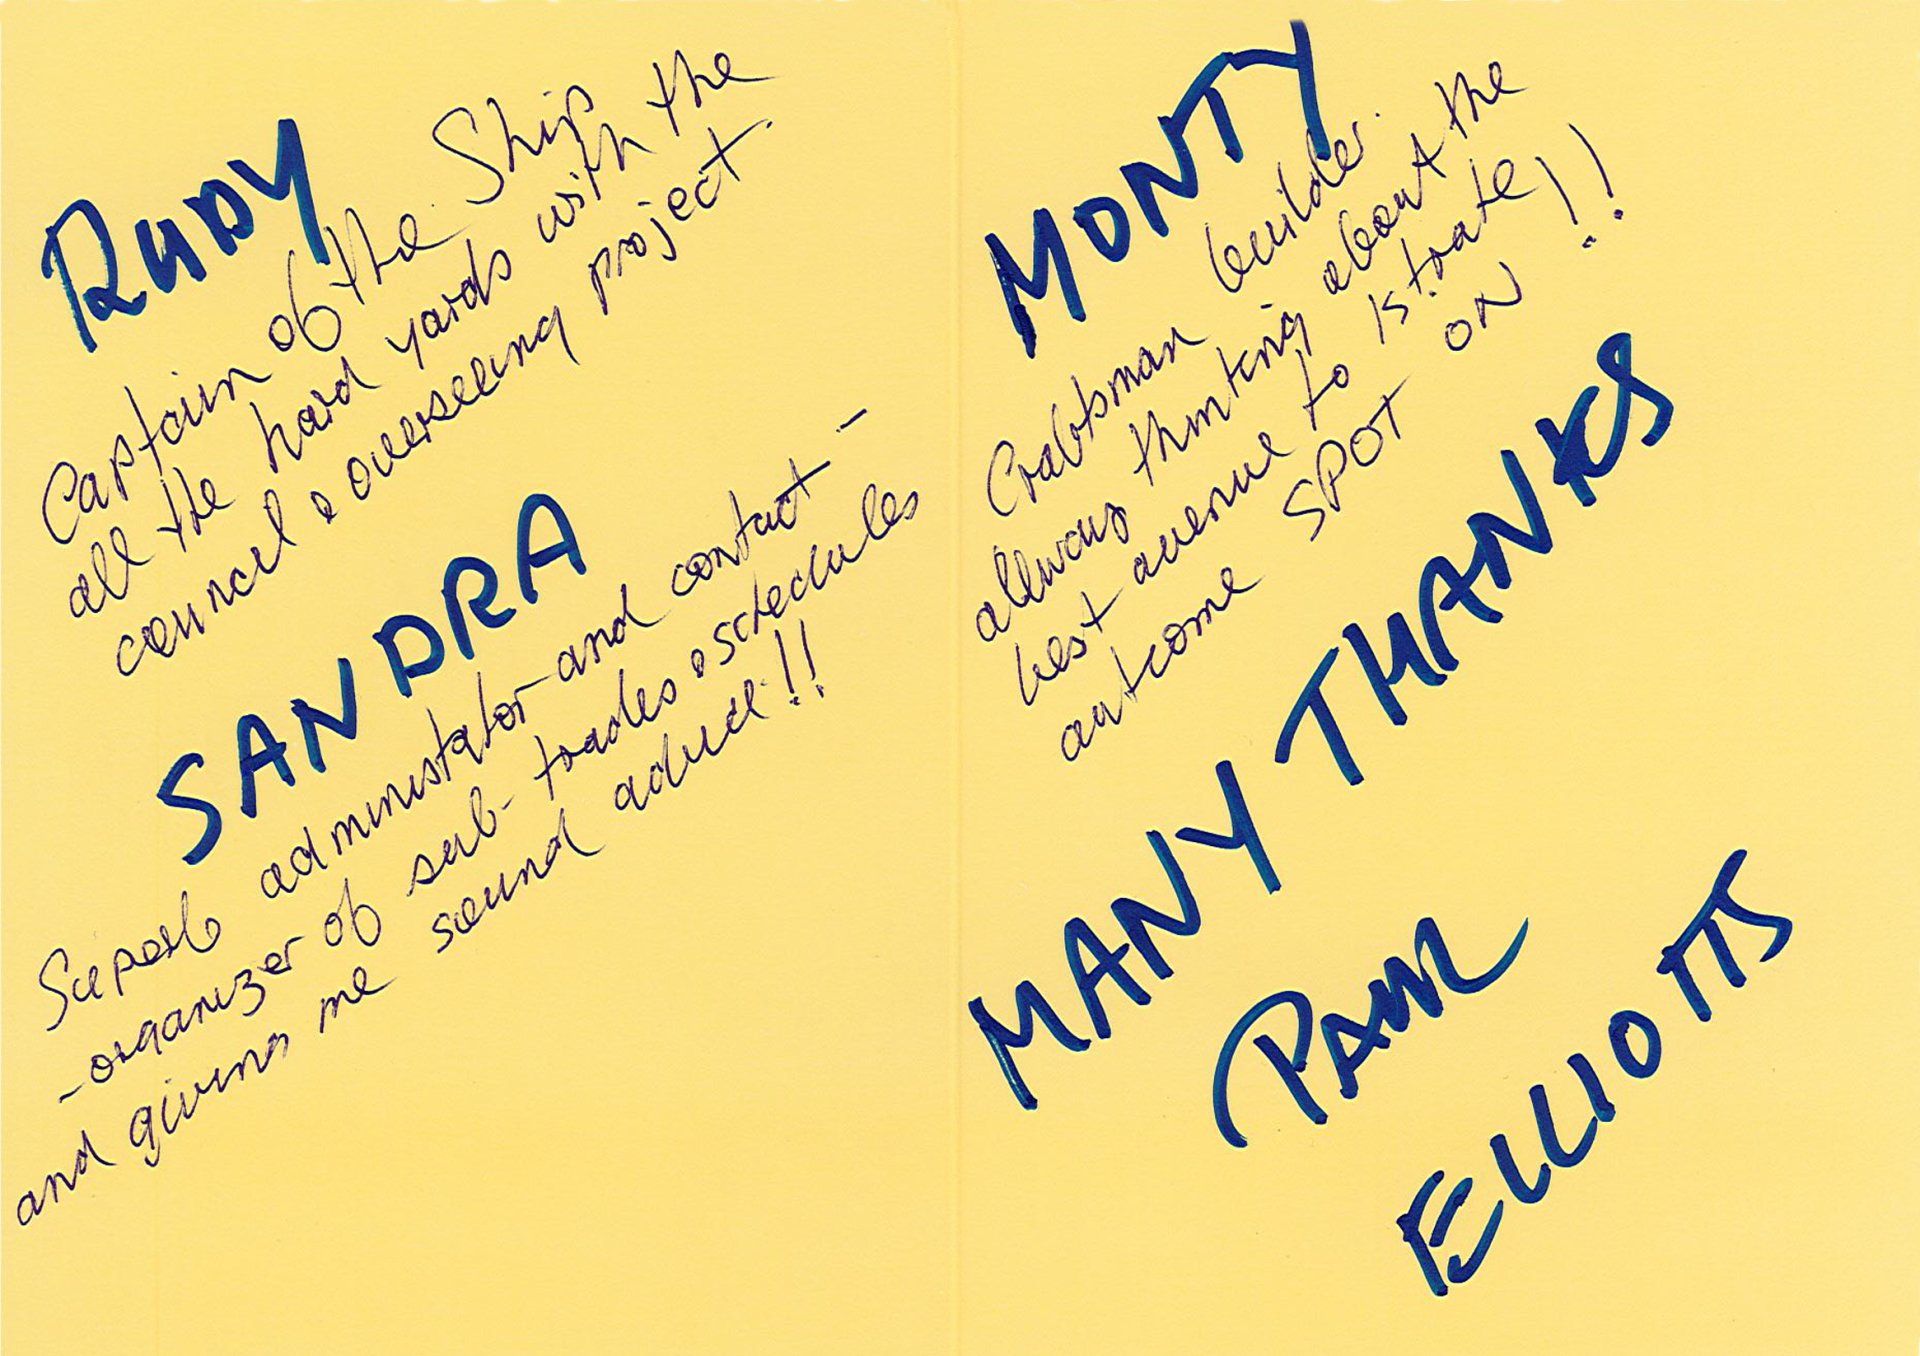 RUDY
Captain of the Ship
all the hard yards with the
council & overseeing project.
SANDRA
Superb administator and contact -
- organizer of sub-trades & schedules
and giving me sound advice!!
MONTY
Craftsman builder.
allways thinking about the
best avenue to 1st rate
outcome SPOT ON!!
MANY THANKS
PAUL
ELLIOTTS